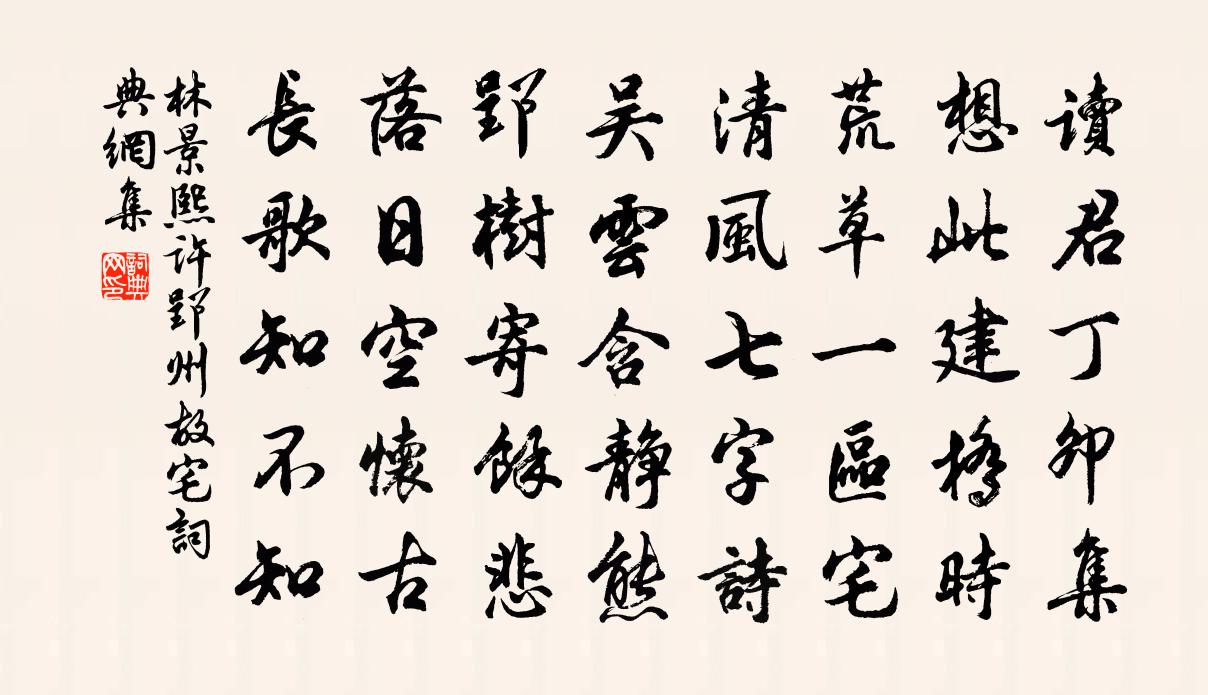 讀君丁卯集
想此建橋時
荒草一區宅
清風七字詩
吴雲含靜態
郢樹寄餘悲
落日空懷古
長歌知不知
林景熙許郢州故宅詞
典網集
詞典网印